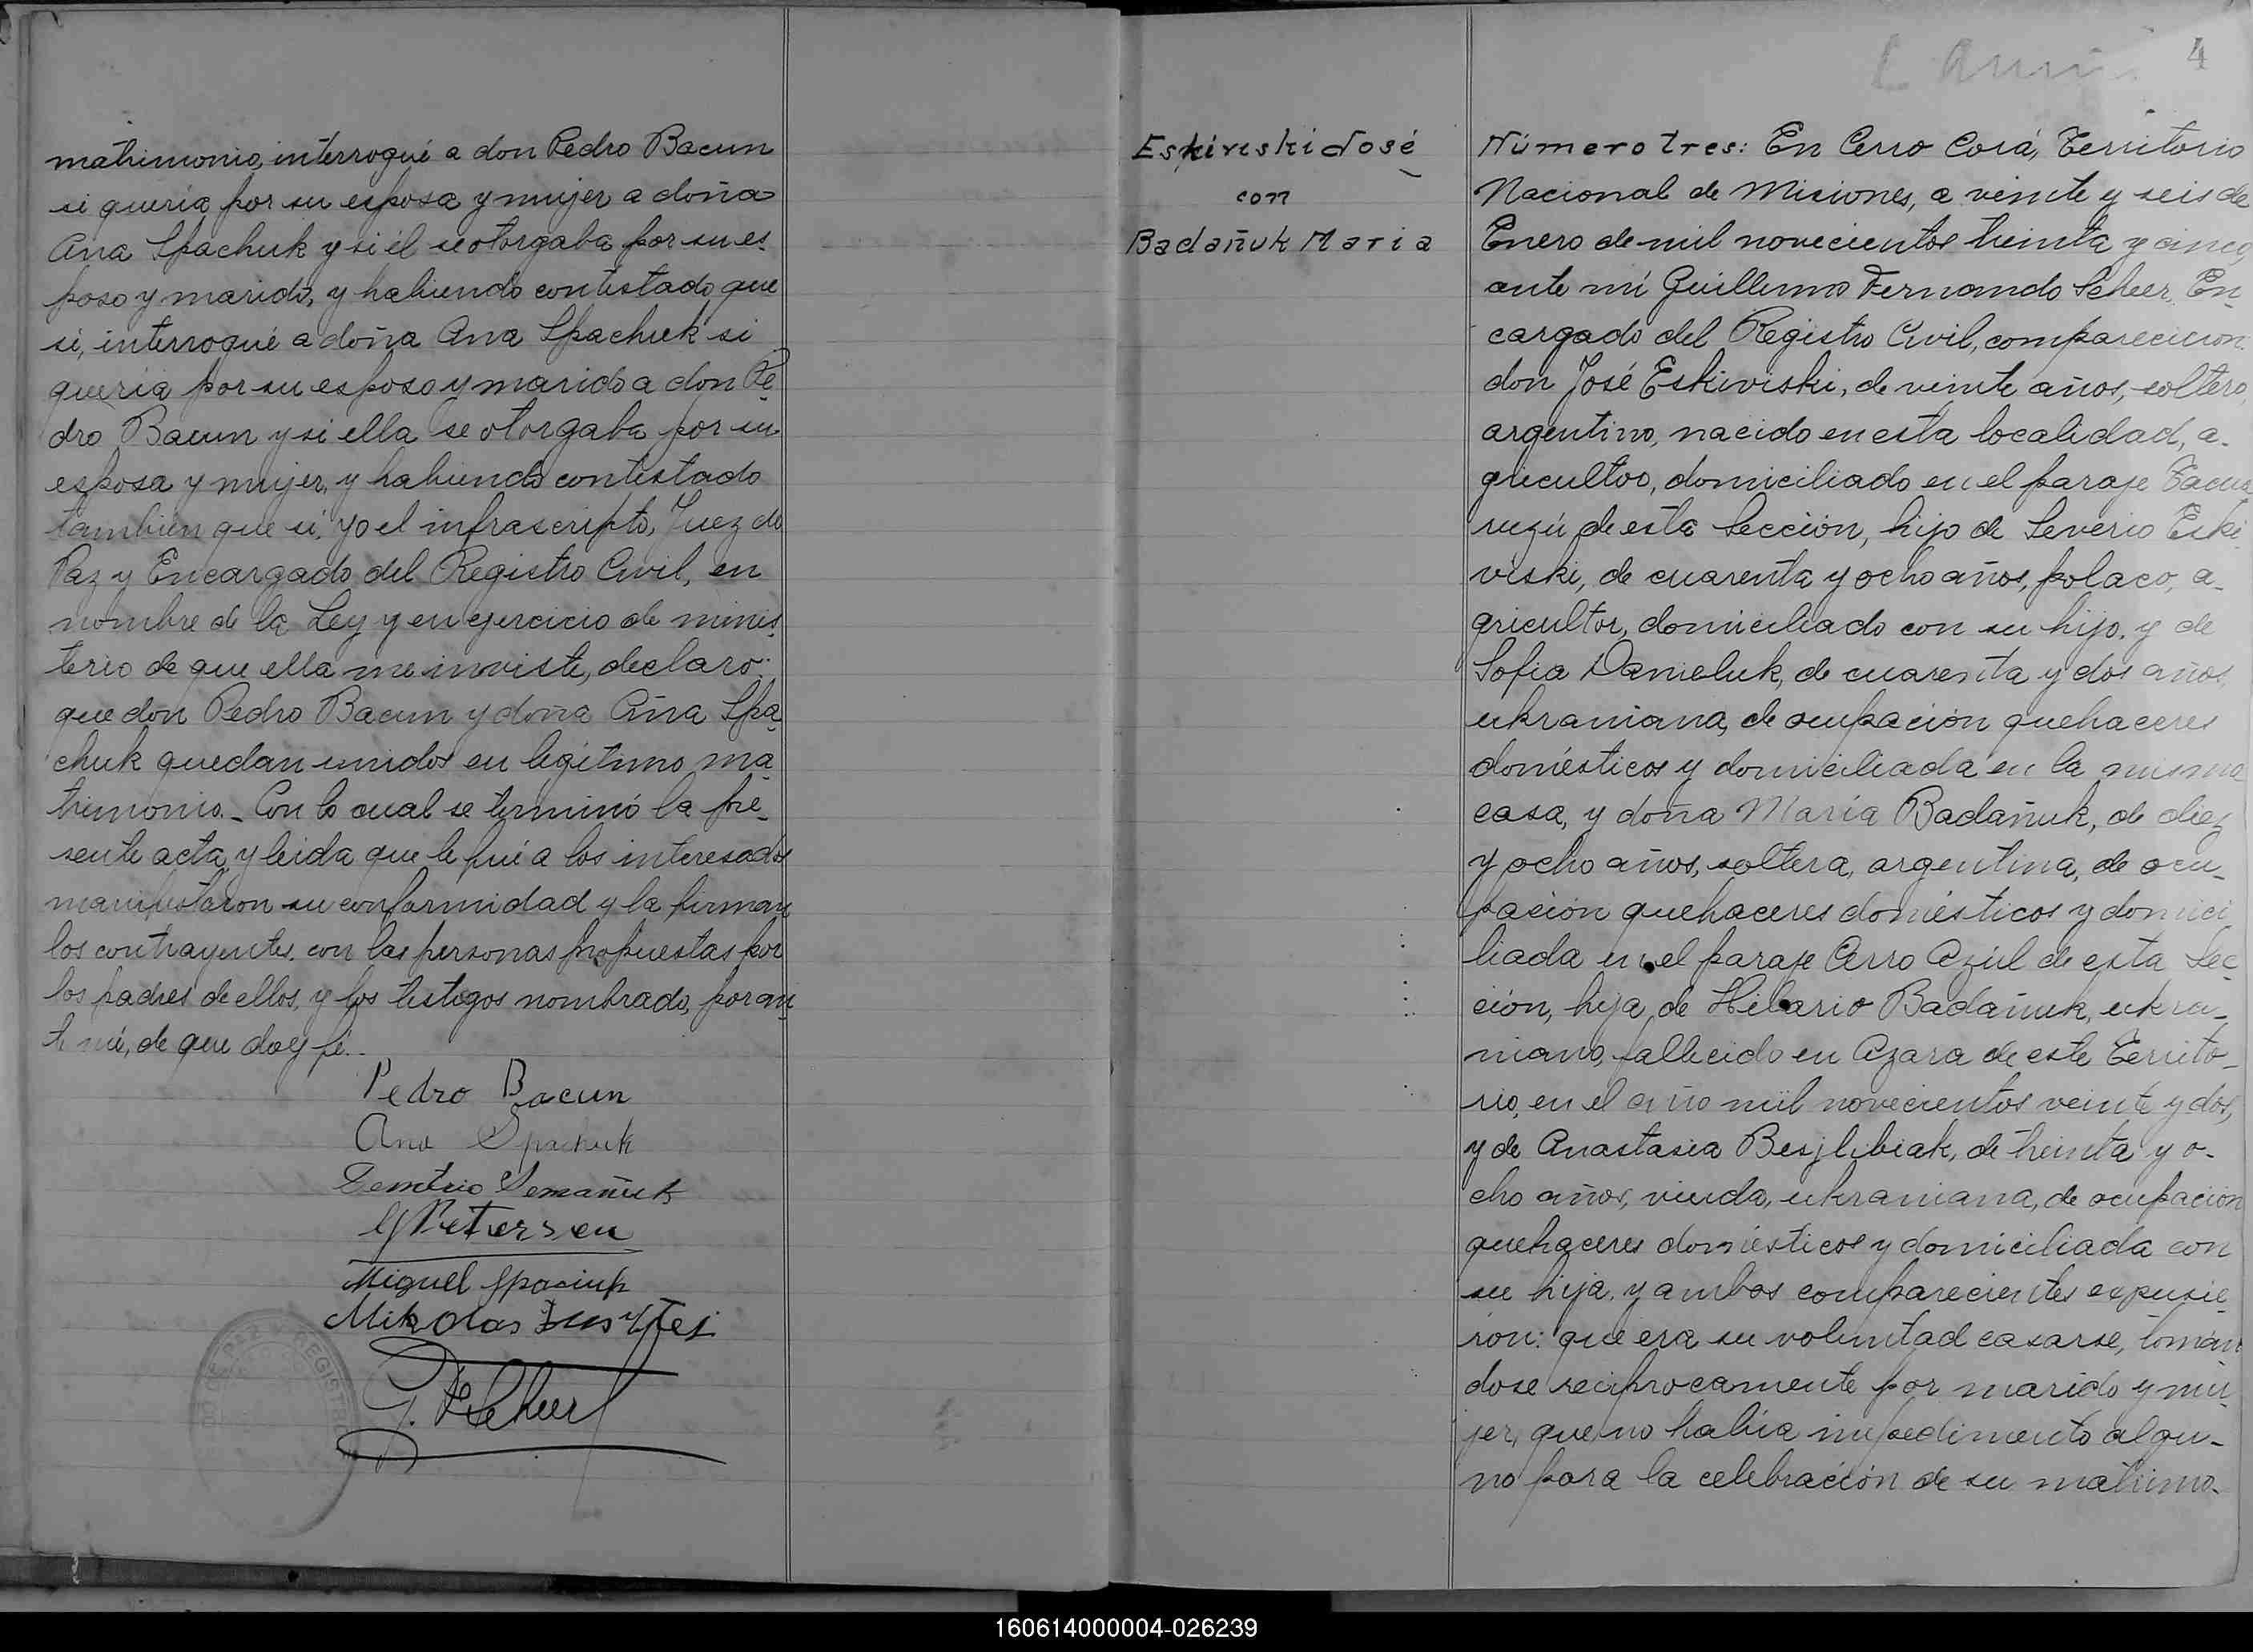 matrimonio, interrogué a don Pedro Bacun
si quería por su esposa y mujer a doña
Ana Spachuk y si él se otorgaba por su es-
poso y marido, y habiendo contestado que
sí, interrogué a doña Ana Spachuk si
quería por su esposo y marido a don Pe-
dro Bacun y si ella se otorgaba por su
esposa y mujer, y habiendo contestado
tambien que sí, yo el infrascripto, Juez de
Paz y Encargado del Registro Civil, en
nombre de la Ley y en ejercicio de minis-
terio de que ella me inviste, declaro:
que don Pedro Bacun y doña Ana Spa-
chuk quedan unidos en legítimo ma-
trimonio._ Con lo cual se terminó la pre-
sente acta, y leída que le fué a los interesados
manifestaron su conformidad y la firman
los contrayentes, con las personas propuestas por
los padres de ellos, y los testigos nombrado, por an-
te mí, de que doy fé._
Pedro Bacun
Ana Spachuk
Demetrio Semañuk
G Petersen
Miguel Spaciuk
Mikolas
G. F. Scheer
4
Eskiviski José
con
Badañuk Maria
Número tres: En Cerro Corá, Territorio
Nacional de Misiones, a veinte y seis de
Enero de mil novecientos treinta y cinco,
ante mí Guillermo Fernando Scheer, En-
cargado del Registro Civil, comparecieron:
don José Eskiviski, de veinte años, soltero,
argentino, nacido en esta localidad, a-
gricultor, domiciliado en el paraje Tacua-
ruzú de esta Sección, hijo de Severio Eski-
viski, de cuarenta y ocho años, polaco, a-
gricultor, domiciliado con su hijo, y de
Sofia Danieluk, de cuarenta y dos años,
ukraniana, de ocupación quehaceres
domésticos y domiciliada en la misma
casa, y doña María Badañuk, de diez
y ocho años, soltera, argentina, de ocu-
pación quehaceres domésticos y domici-
liada en el paraje Cerro Azúl de esta Sec-
ción, hija de Hilario Badañuk, ukra-
niano, fallecido en Azara de este Territo-
rio, en el año mil novecientos veinte y dos,
y de Anastasia Besjlibiak, de treinta y o-
cho años, viuda, ukraniana, de ocupación
quehaceres domésticos y domiciliada con
su hija, y ambos comparecientes expusie-
ron: que era su voluntad casarse, tomán-
dose recíprocamente por marido y mu-
jer, que no había impedimento algu-
no para la celebración de su matrimo-
160614000004-026239